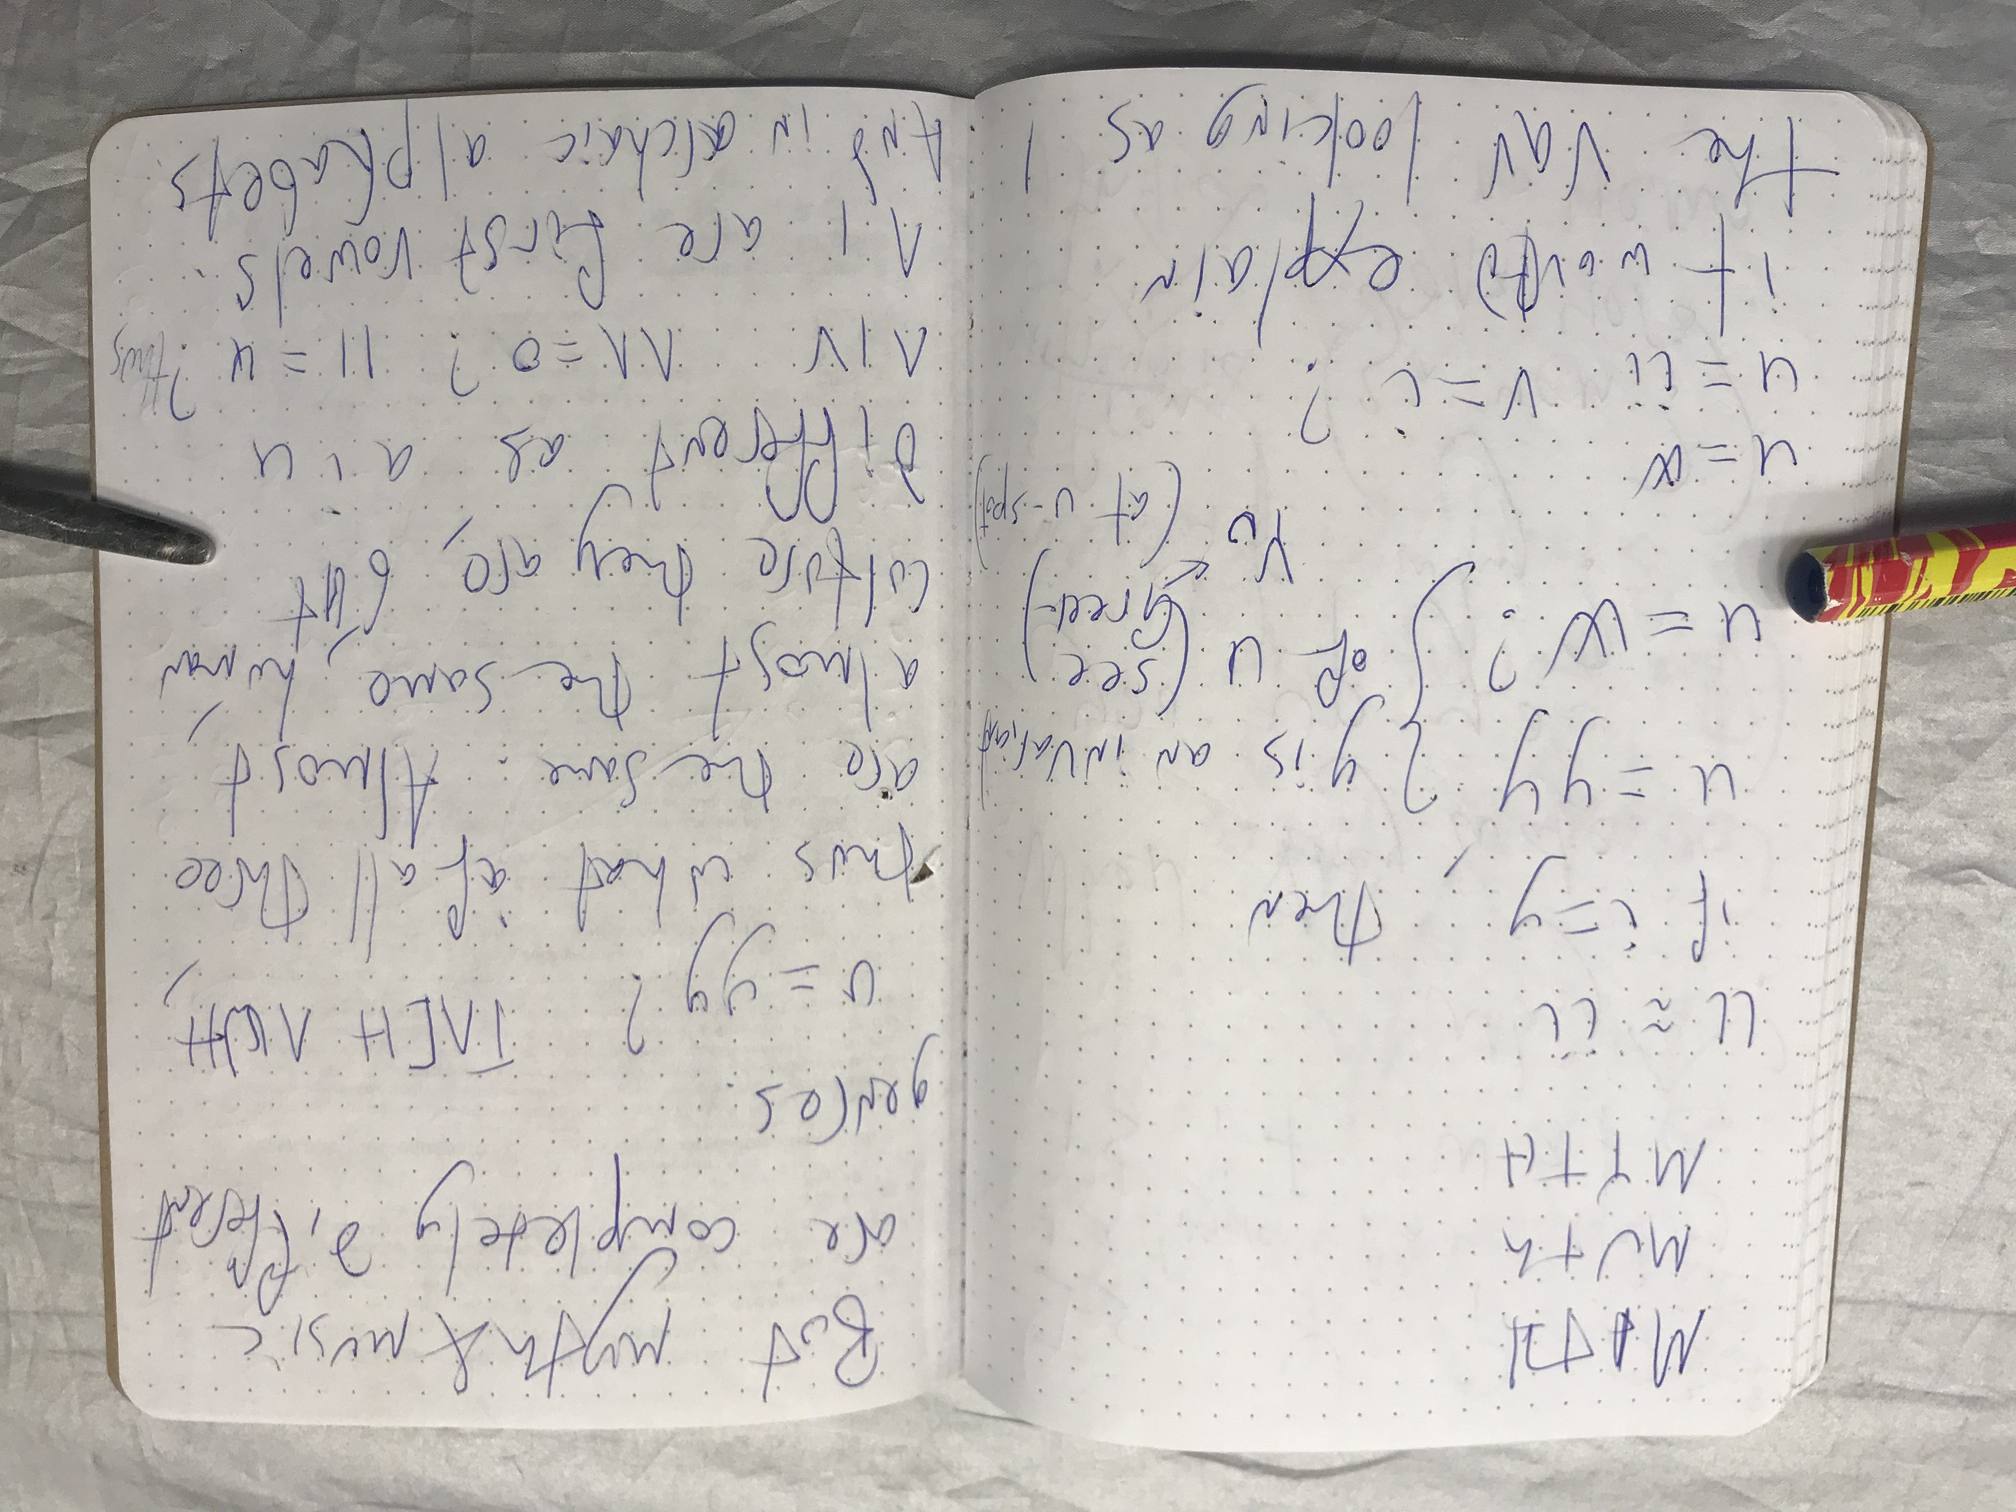 MATH
Muth
MYTH
U ≈ ii
if i=y, then
u = yy } y is an invariant
u = ? } of u (see Greek)
Yu (at u-spot)
u = α
u = ii v = i ?
it would explain
the vav looking as 1
But myth & music
are completely different
genres.
u = yy ?
thus what if all three
are the same. Almost
almost the same, human
culture they are, but
different as a i u
Λ I V ΛΛ = o ? II = u ? thus
Λ I are first vowels.
And in archaic alphabets